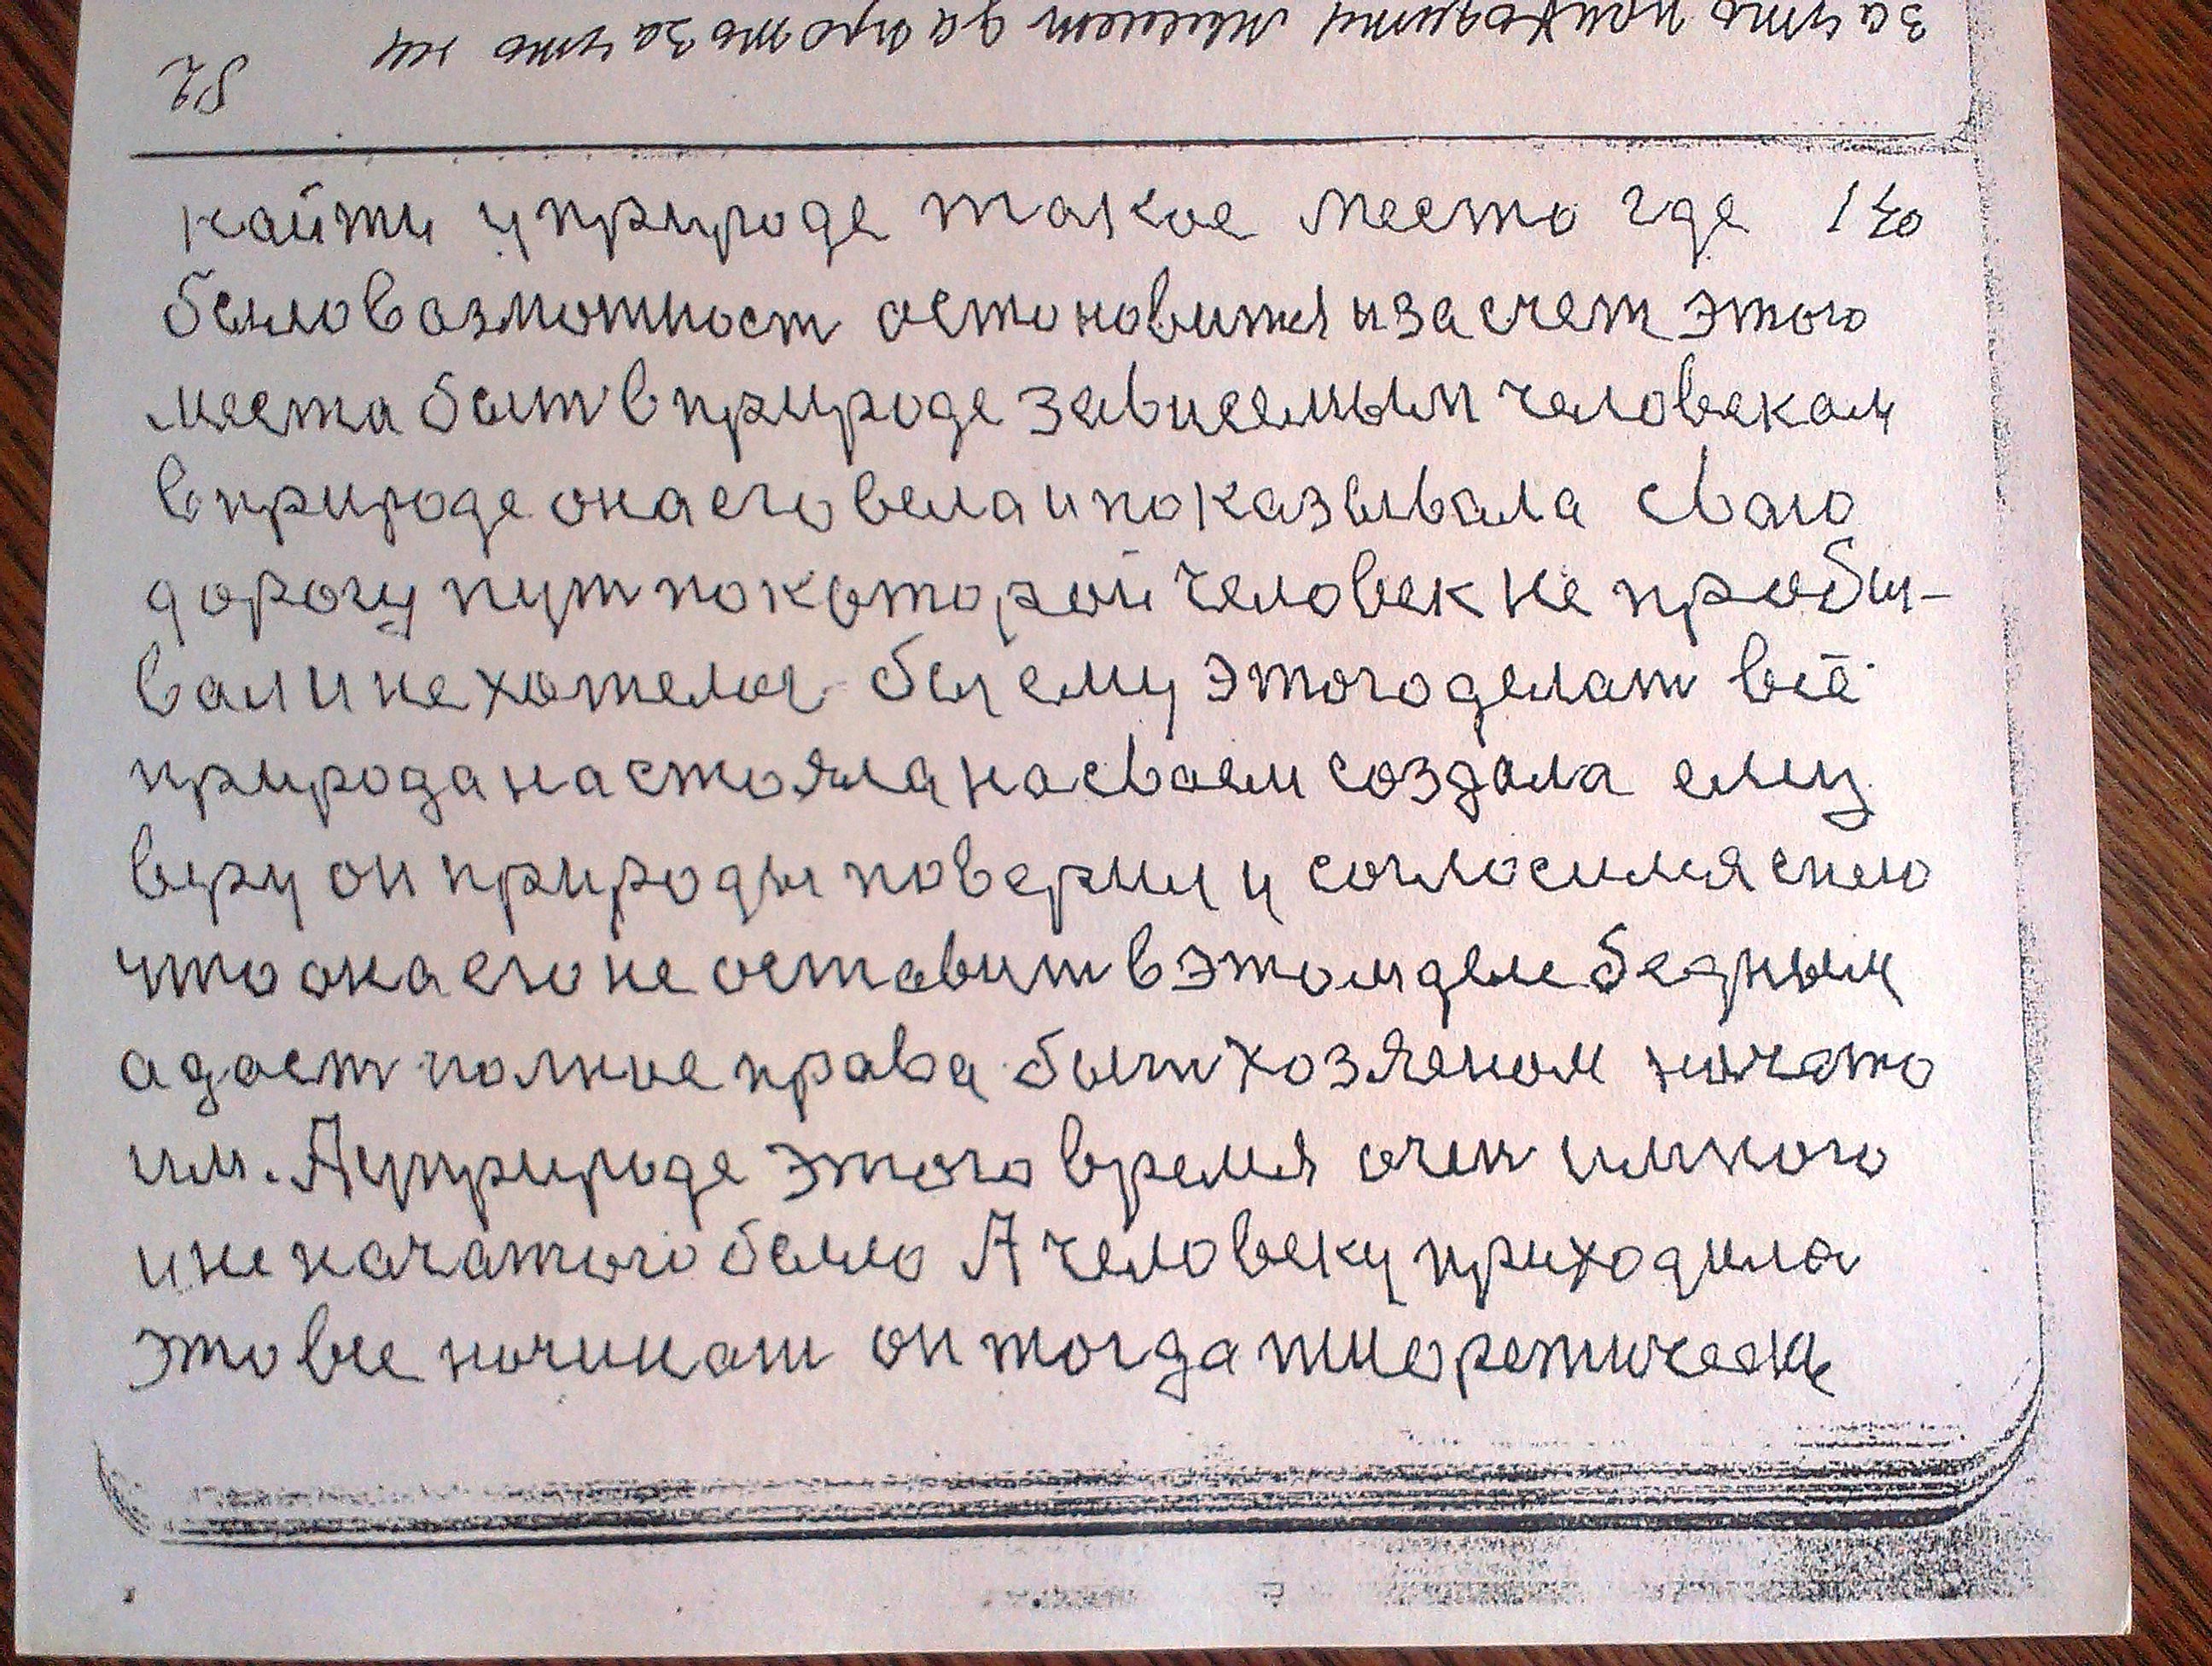 за что приходити мешет да прożзачто не
52
найти у природе такое место где 140
было возможност остоновитя и за счет этого
места быт в природе зависемым человекам
в природе она его вела и показывала сваю
дорогу пут по которой человек не пробы-
вал и не хотелос бы ему этого делат всё
природа настояла на сваем создала ему
веру он природы поверил и согласился с нею
что она его не оставит в этом деле бедным
а дает полное права быт хозяеном начато
им. А у природе этого время очен и много
и не начатого было А человеку приходила
это все начинат он тогда тиоретически